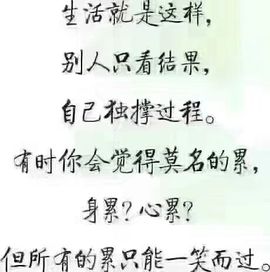 生活就是这样，
别人只看结果，
自己独撑过程。
有时你会觉得莫名的累，
身累？心累？
但所有的累只能一笑而过。